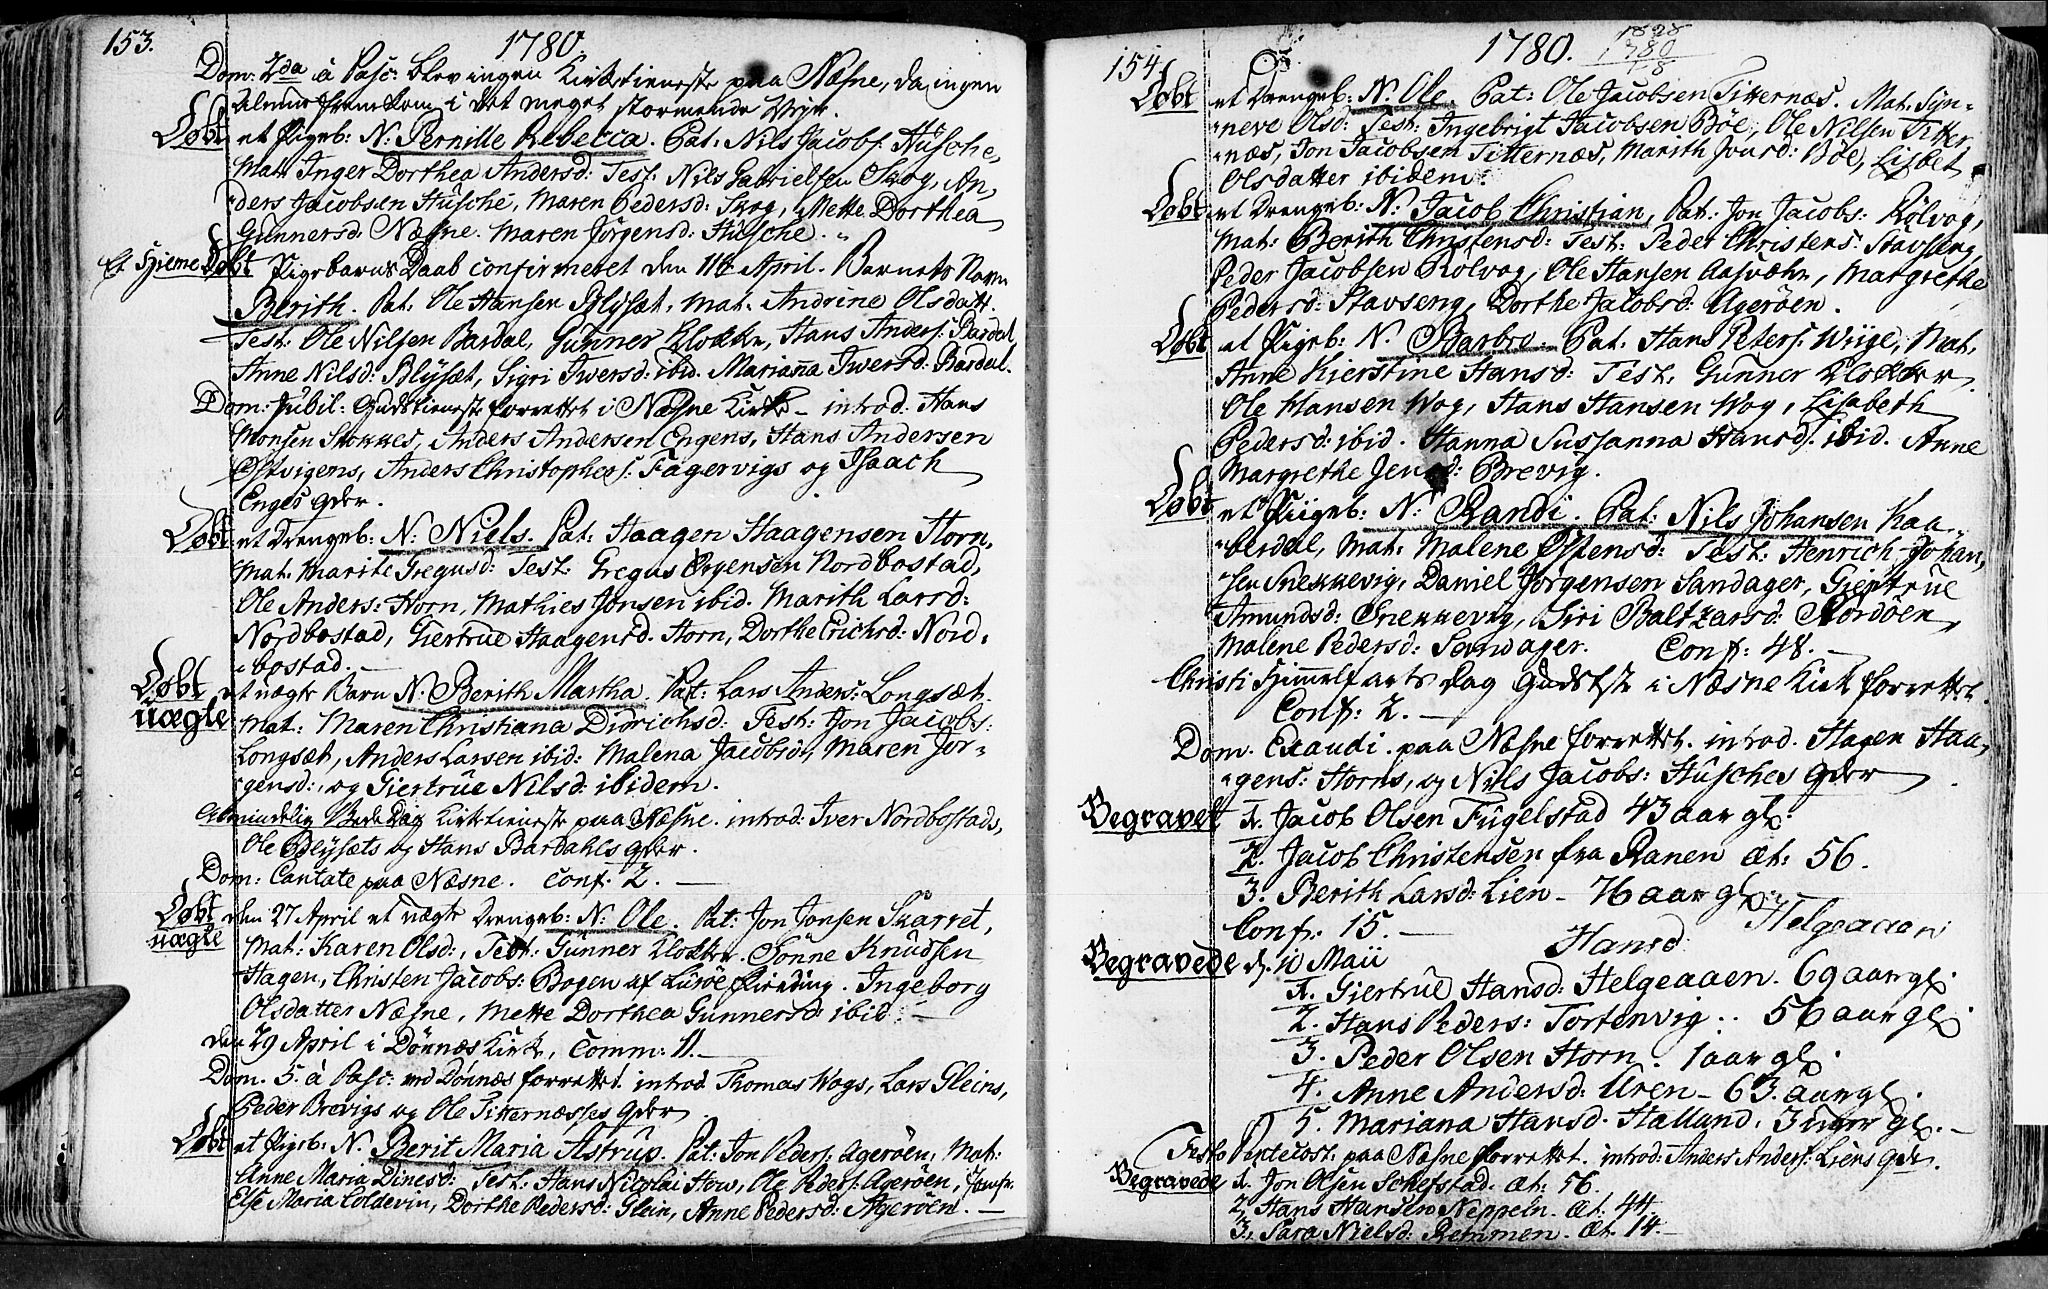 153.
1780.
Dom: 2da à Pasc: blev ingen Kirketieneste paa Næsne, da ingen
Almue fremkom i det meget stormende Veyr.
Døbt et Pigeb: N: Pernille Rebecca. Pat: Nils Jacobs: Husche,
Mat: Inger Dorthea Andersd: Test: Nils Gabrielsen Skog, An-
ders Jacobsen Husche, Maren Pedersd: Skog, Mette Dorthea
Gunnersd: Næsne. Maren Jørgensd: Husche.
Et Hieme Døbt Pigebarns Daab confirmeret den 116 April. Barnets Navn
Berith. Pat: Ole Hansen Blysæt, Mat: Andrine Olsdatt.
Test: Ole Nilsen Bardal, Gunner Klokker, Hans Anders: Bardal,
Anne Nilsd: Blysæt, Sigri Iversd: ibid. Marianna Iversd: Bardal.
Dom: Jubil: Gudstieneste forrettet i Næsne Kirke – introd: Hans
Monsen Stokkes, Anders Andersen Engens, Hans Andersen
Østvigens, Anders Christophers: Fagervigs og Isaach
Enges qder.
Døbt et Drengeb: N: Niels. Pat: Haagen Haagensen Horn,
Mat: Marite Gregusd: Test: Gregus Ørgensen Nordbostad,
Ole Anders: Horn, Mathies Jonsen ibid. Marith Larsd:
Nordbostad, Giertrue Haagensd. Horn, Dorthe Erichsd: Nord-
bostad.
Døbt et uægte Barn N. Berith Martha. Pat: Lars Anders: Longsæt
uægte Mat: Maren Christiana Didrichsd: Test: Jon Jacobs:
Longsæt, Anders Larsen ibid: Malena Jacobsd:, Maren Jør-
gensd:, og Giertrue Nilsd: ibidem.
Almindelig Bede Dag Kirketieneste paa Næsne. introd: Iver Nordbostads,
Ole Blysæts og Hans Bardahls qder.
Dom: Cantate paa Næsne. Conf: 2.
Døbt den 27 April et uægte Drengeb: N: Ole. Pat: Jon Jonsen Skarret,
uægte Mat: Karen Olsd:, Test: Gunner Klokker. Tønne Knudsen
Hagen, Christen Jacobs: Bogen af Lurøe Fierding. Ingeborg
Olsdatter Næsne, Mette Dorthea Gunnersd: ibid.
den 29 April i Dønnæs Kirke, Comm: 11.
Dom. 5. à Pasc: ved Dønnæs forrettet. introd Thomas Wogs, Lars Gleins,
Peder Brevigs og Ole Titternæsses qder.
Døbt et Pigeb: N. Berit Maria Astrup. Pat: Jon Peders: Agerøen, Mat:
Anne Maria Dinesd: Test: Hans Nicolai How, Ole Peders: Agerøen, Jomfr.
Else Maria Coldevin, Dorthe Pedersd: Glein, Anne Pedersd: Agerøen.
154.
1780.
1828
1780
48
Døbt et Drengeb: N. Ole. Pat: Ole Jacobsen Titternæs. Mat: Syn-
neve Olsd: Test: Ingebrigt Jacobsen Bøe, Ole Nilsen Titter
næs, Jon Jacobsen Titternæs, Marith Jonsd: Bøe, Lisbet
Olsdatter ibidem.
Døbt et Drengeb: N: Jacob Christian, Pat: Jon Jacobs: Rølvog,
Mat: Berith Christensd: Test: Peder Christens: Stavseng,
Peder Jacobsen Rølvog, Ole Hansen Aasvær, Margrethe
Pedersd: Stavseng, Dorthe Jacobsd: Agerøen.
Døbt et Pigeb: N. Barbro. Pat: Hans Peters: Wiige, Mat:
Anne Kierstine Hansd: Test: Gunner Klokker
Ole Hansen Wog, Hans Hansen Wog, Lisabeth
Pedersd: ibid. Hanna Sussanna Hansd: ibid. Anne
Margrethe Jensd: Brevig.
Døbt et Piigeb: N: Randi. Pat: Nils Johansen Kaa-
berdal, Mat: Malene Østensd: Test: Henrich Johan-
sen Snekkevig, Daniel Jørgensen Sandager, Giertrue
Amundsd: Snekkevig, Siri Baltzarsd: Rordøen,
Malene Pedersd: Sandager. Conf: 48.
Christi Himmelfarts Dag Gudstste i Næsne Kirk forrettet
Conf: 2.
Dom. Exaudi. paa Næsne forrettet. introd. Hagen Haa-
gens: Horns, og Nils Jacobs: Husches qder
Begravet 1. Jacob Olsen Fugelstad 43 aar gl:
2. Jacob Christensen fra Ranen æt: 56.
3. Berith Larsd: Lien – 76 aar gl:
Conf: 15. Hansd Helgeaaen
Begravede d. 10 Maii
1. Giertrue Hansd: Helgeaaen. 69 aar gl.
2. Hans Peders: Tortenvig. 56 aar gl.
3. Peder Olsen Horn. 1 aar gl.
4. Anne Andersd: Uren – 63. aar gl.
5. Mariana Hansd. Halland. 3 uger gl.
Festo Pentecost: paa Næsne forrettet. introd: Anders Anders: Liens qde.
Begravede 1. Jon Olsen Schefstad. æt: 56.
2. Hans Hansen Neppeln. æt. 44.
3. Sara Nielsd: Remmen. æt. 14.